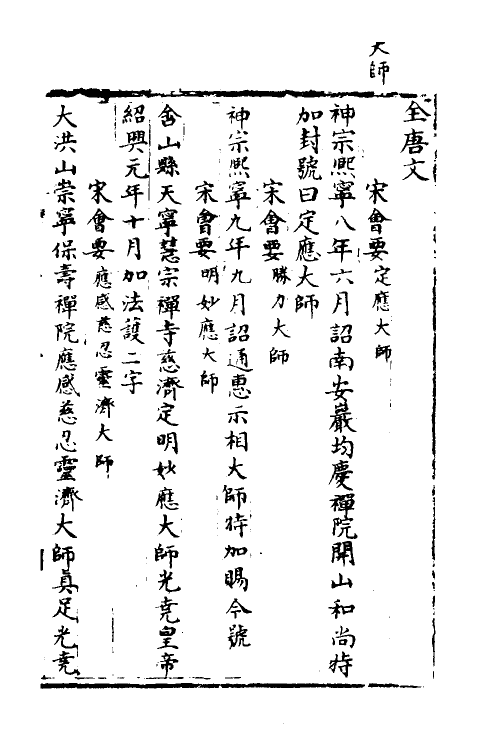 大師
全唐文
宋會要 定應大師
神宗熙寧八年六月詔南安巖均慶禪院開山和尚特
加封號曰定應大師
宋會要 勝力大師
神宗熙寧九年九月詔通惠示相大師特加賜今號
宋會要 明妙應大師
舍山縣天寧慧宗禪寺慈濟定明妙應大師光堯皇帝
紹興元年十月加法護二字
宋會要 應感慈忍靈濟大師
大洪山崇寧保壽禪院應感慈忍靈濟大師真足光堯